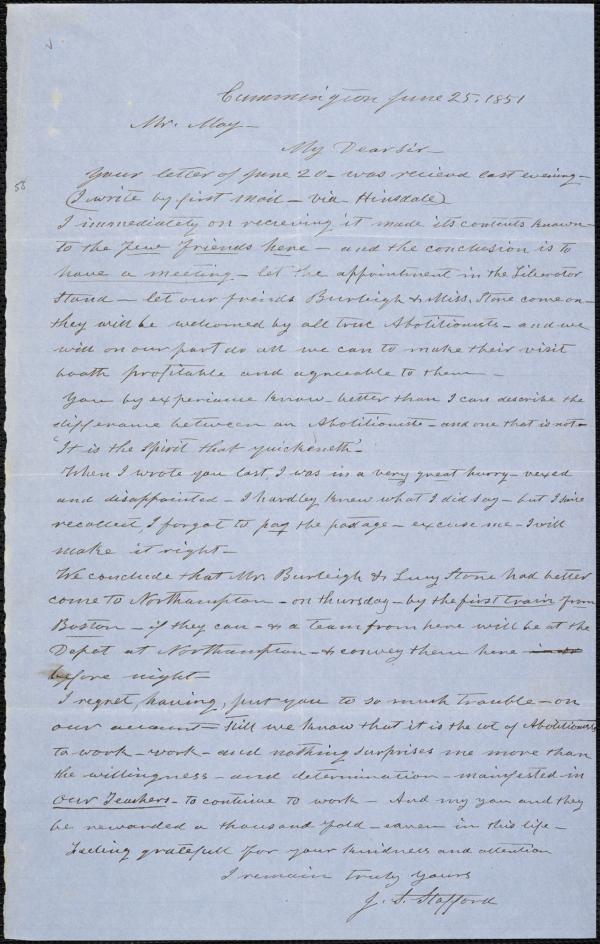 Cummington June 25. 1851
Mr. May—
My Dear Sir—
Your letter of June 20— was reciend last evening—
(I write by first mail— via Hinsdale)
55
I immediately on recieving it made its contents known—
to the few Friends here— and the conclusion is to
have a meeting— let the appointment in the Liberator
Stand— let our friends Burleigh & Miss. Stone come on—
they will be welcomed by all true Abolitionists— and we
will on our part do all we can to make their visit
booth profitable and agreeable to them—
You by experiance know— better than I can describe the
differance between an Abolitionist— and one that is not—
'It is the Spirit that quickeneth'—
When I wrote you last, I was in a very great hurry— vexed
and disappointed— I hardley knew what I did say— but I
recollect I forgot to pay the postage— excuse me— I will
make it right—
We conclude that Mr. Burleigh & Lucy Stone had better
come to Northampton— on thursday— by the first train from
Boston— if they can— & a team from here will be at the
Depot at Northampton— & convey them here
before night—
I regret, having, put you to so much trouble— on
our account— Still we know that it is the lot of Abolitionists
to work— work— and nothing surprises me more than
the willingness— and determination— mainfested in
Our Teachers— to continue to work— And my you and they
be rewarded a thousand fold— eaven in this life—
Feeling gratefull for your kindness and attention
I remain truly yours
J. S. Stafford